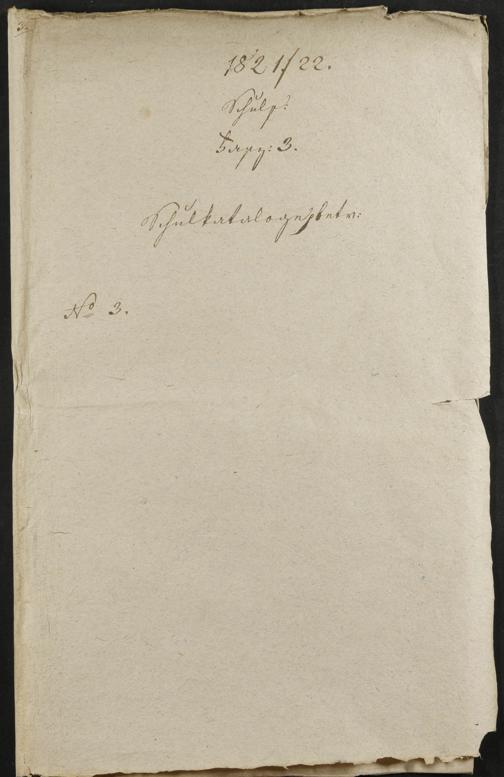 1821/22.
Schulf:
Fasz: 3.
Schulkataloge betr:
No 3.